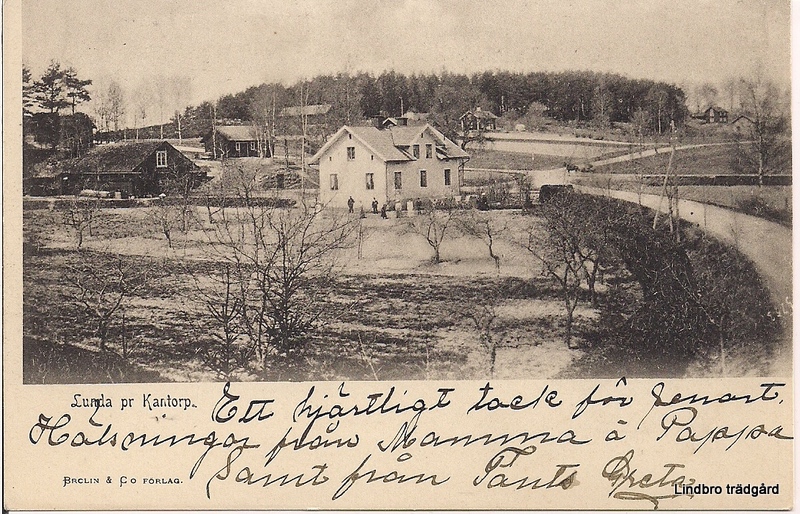 Lunda pr Kantorp.
Ett hjärtligt tack för
Hälsningar från Mamma å Pappa
Samt från Tants Greta
BRCLIN & CO FÖRLAG.
Lindbro trädgård